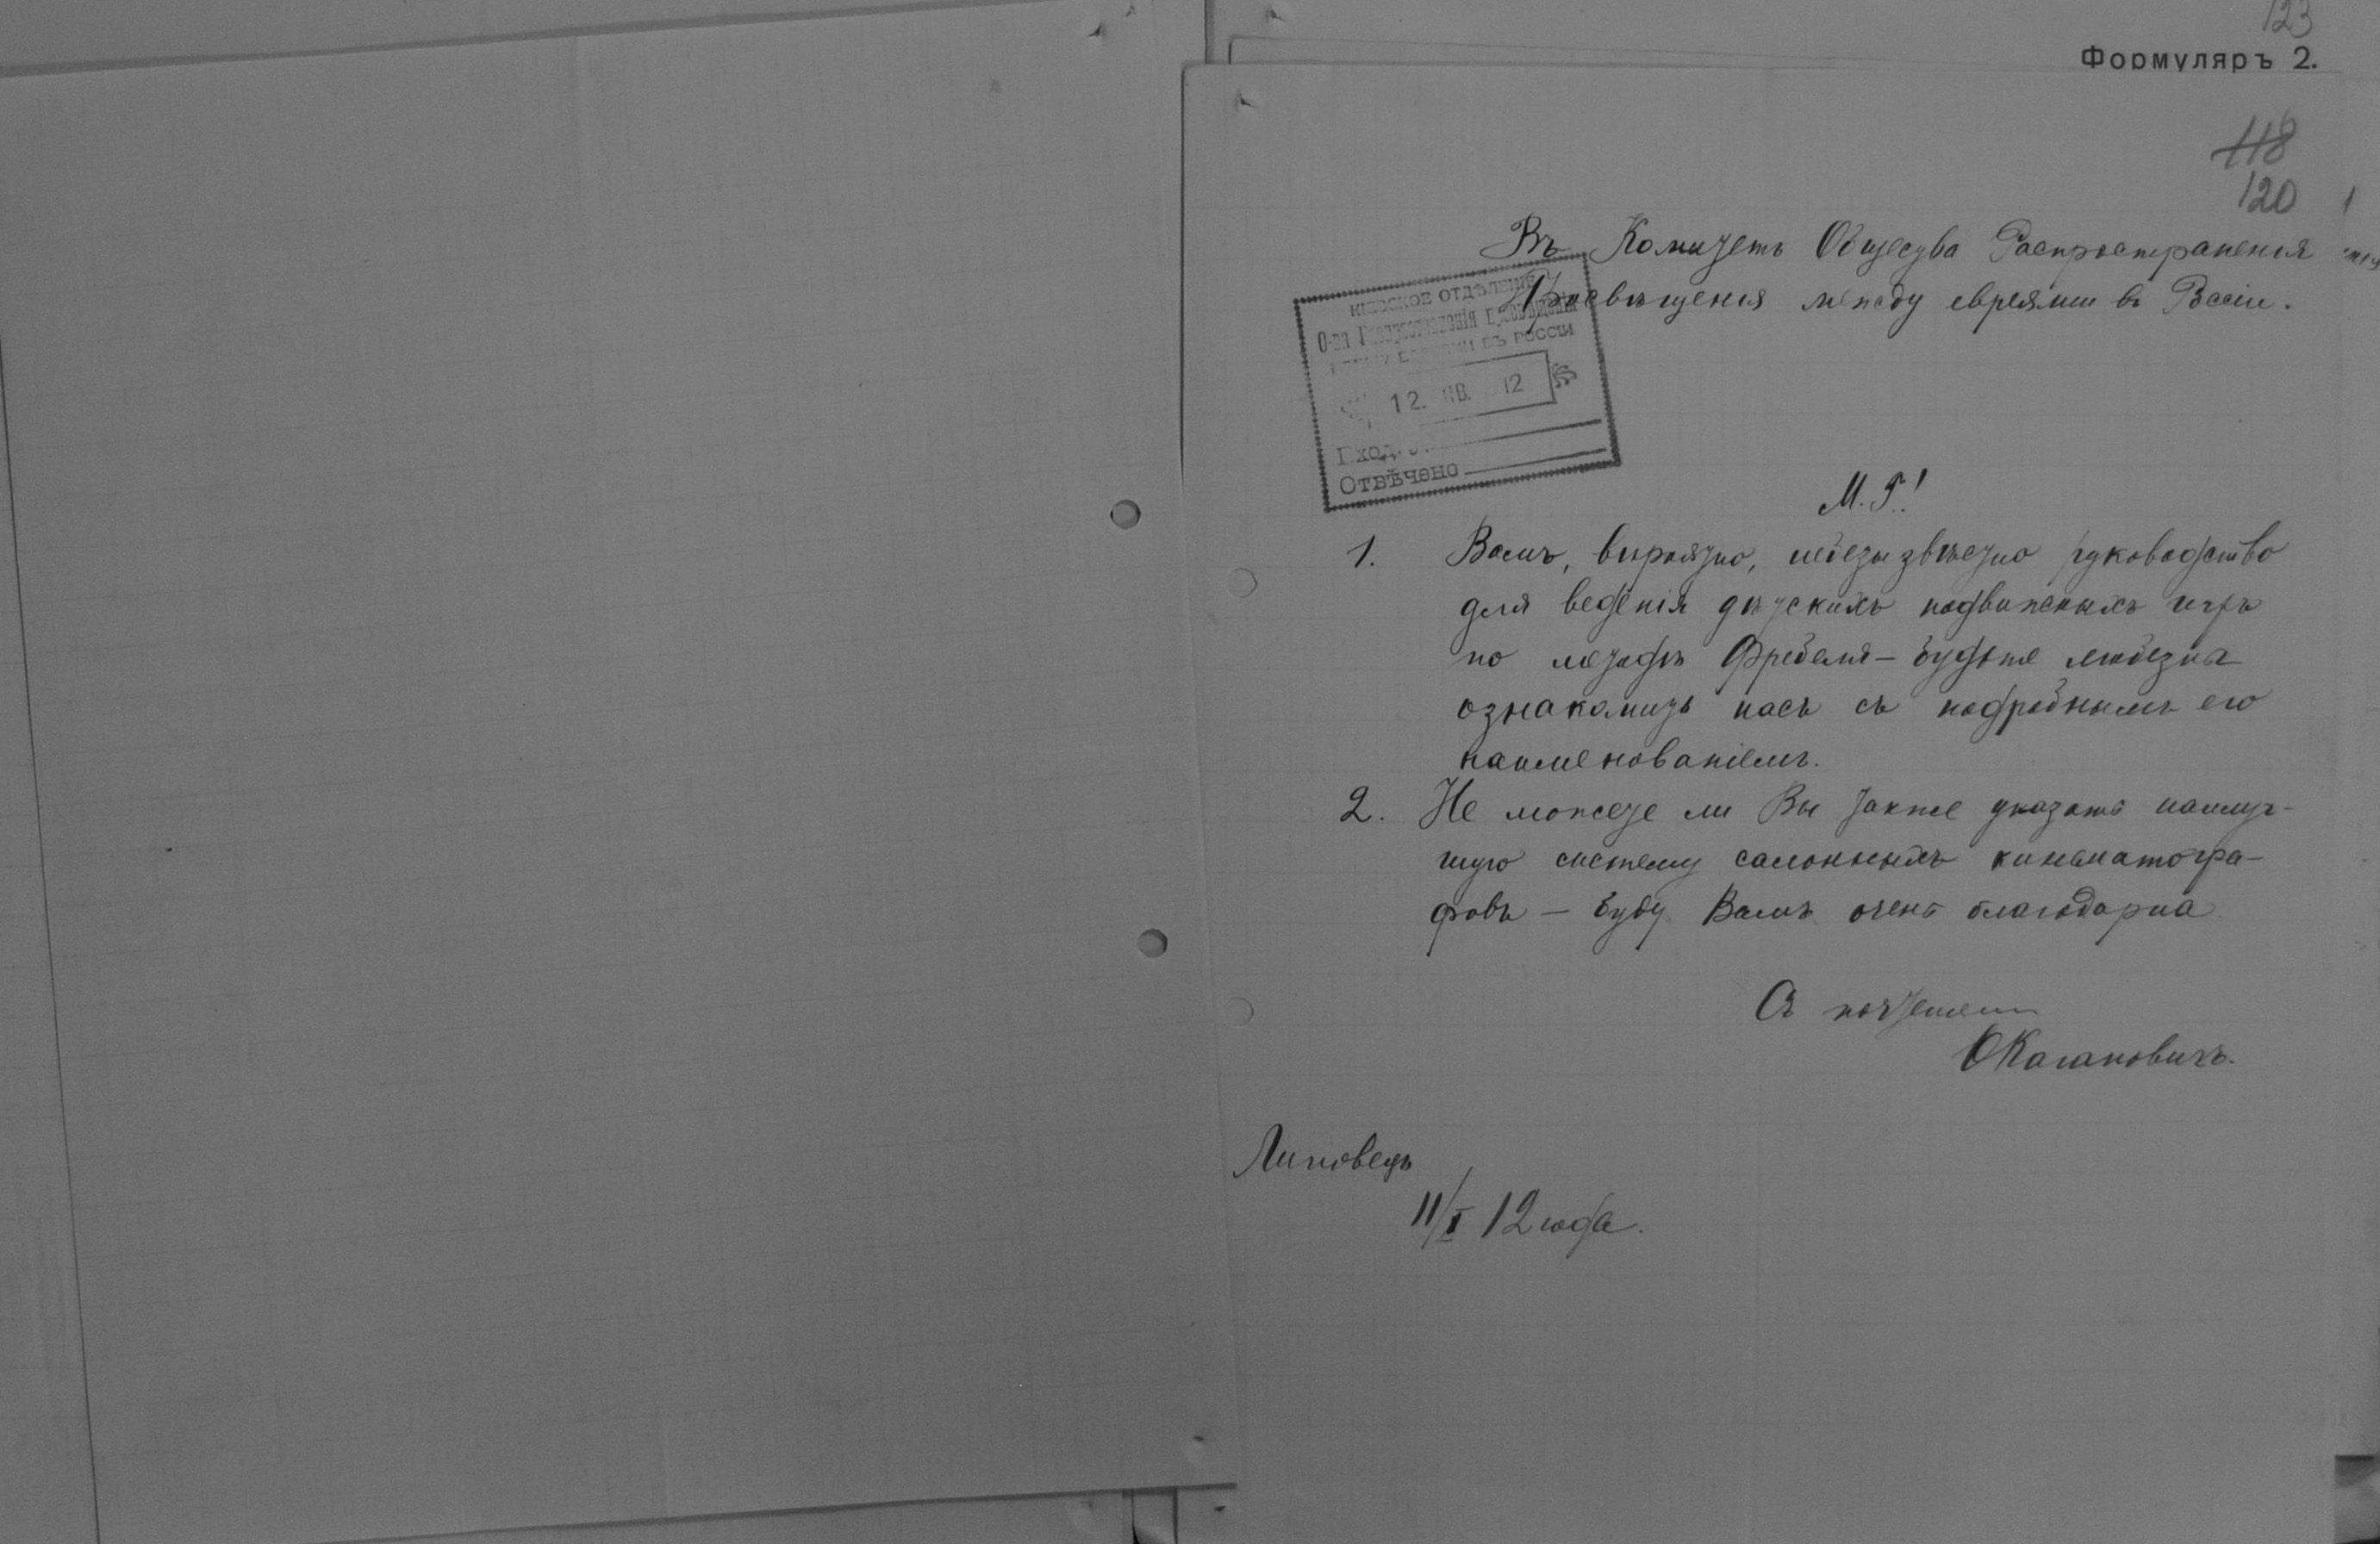 123
Формуляръ 2.
118
120
Въ Комитетъ Общества Распространенія
Просвѣщенія между евреями въ Россіи.
КІЕВСКОЕ ОТДѢЛЕНІЕ
О-ва Распространенія Просвѣщенія
ВЪ РОССІИ
12. ЯНВ. 12
Вход.
Отвѣчено
М. Г.!
1. Вамъ, вѣроятно, небезызвѣстно руководство
для веденія дѣтскихъ подвижныхъ игръ
по методѣ Фребеля – будьте любезны
ознакомить насъ съ подробнымъ его
наименованіемъ.
2. Не можете ли Вы также указать наилуч-
шую систему салонныхъ кинематогра-
фовъ – буду Вамъ очень благодарна
Съ почтеніемъ
ОКагановичъ.
Липовецъ
11/I 12 года.